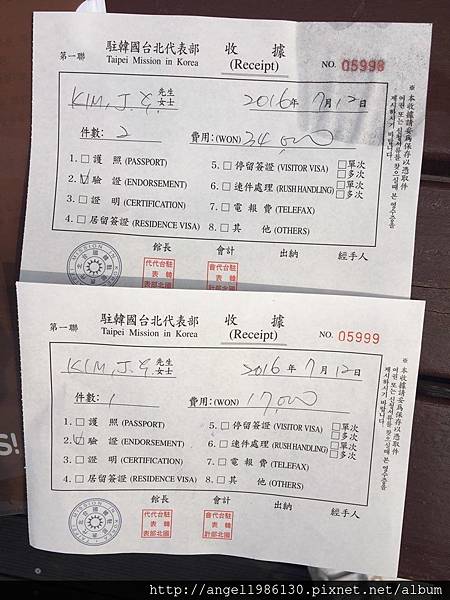 駐韓國台北代表部 收據
第一聯 Taipei Mission in Korea (Receipt) NO. 05998
KIM, J. Y. 先生 女士 2016年 7月12日
件數: 2 費用:(WON) 34,000
1. □ 護 照 (PASSPORT) 5. □ 停留簽證 (VISITOR VISA) □單次 □多次
2. ☑ 驗 證 (ENDORSEMENT) 6. □ 速件處理 (RUSH HANDLING) □單次 □多次
3. □ 證 明 (CERTIFICATION) 7. □ 電報費 (TELEFAX)
4. □ 居留簽證 (RESIDENCE VISA) 8. □ 其 他 (OTHERS)
館長 會計 出納 經手人
※ 本收據請妥為保存以憑取件
어떤 또는 심청서류를 찾으실때 본 영수증을
제시하시기 바랍니다.
駐韓國台北代表部 收據
第一聯 Taipei Mission in Korea (Receipt) NO. 05999
KIM, J. Y. 先生 女士 2016年 7月12日
件數: 1 費用:(WON) 17,000
1. □ 護 照 (PASSPORT) 5. □ 停留簽證 (VISITOR VISA) □單次 □多次
2. ☑ 驗 證 (ENDORSEMENT) 6. □ 速件處理 (RUSH HANDLING) □單次 □多次
3. □ 證 明 (CERTIFICATION) 7. □ 電報費 (TELEFAX)
4. □ 居留簽證 (RESIDENCE VISA) 8. □ 其 他 (OTHERS)
館長 會計 出納 經手人
※ 本收據請妥為保存以憑取件
제시하시기 바랍니다.
S!
http://angel1986130.pixnet.net/album